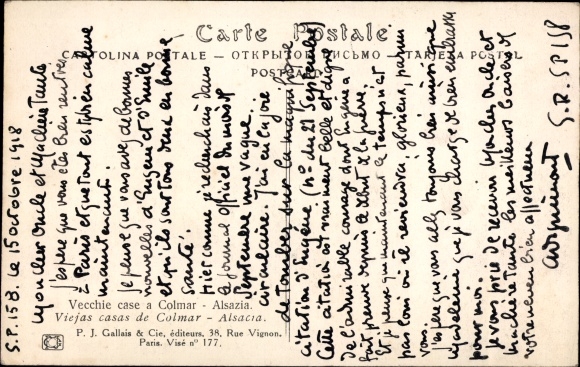 Carte Postale
CARTOLINA POSTALE — ОТКРЫТОЕ ПИСЬМО — TARJETA POSTAL
POSTCARD
Vecchie case a Colmar - Alsazia.
Viejas casas de Colmar - Alsacia.
P. J. Gallais & Cie, éditeurs. 38, Rue Vignon.
Paris. Visé nº 177.
S.P. 158. Le 15 octobre 1918
Mon cher oncle et ma chère Tante
J'espère que vous êtes bien rentrés
à Paris et que tout est bien calme
maintenant.
Je pense que vous avez de bonnes
nouvelles d'Eugène et d'Emile
et qu'ils sont tous deux en bonne
santé.
Hier comme je recherchais dans
le Journal Officiel du mois de
Septembre une vague
circulaire. J'ai eu la joie
de tomber sur la magnifique
citation d'Eugène (nº du 21 Septembre)
Cette citation est vraiment belle et digne
de l'admirable courage dont Eugène a
fait preuve depuis le début de la guerre.
Et je pense que maintenant le temps n'est
pas loin où il reviendra, glorieux, parmi
vous.
J'espère que vous allez toujours bien ainsi que
Madeleine que je vous charge de bien embrasser
pour moi.
Je vous prie de recevoir mon cher oncle et
ma chère Tante les meilleurs baisers de
votre neveu bien affectueux
S.R. SP 158